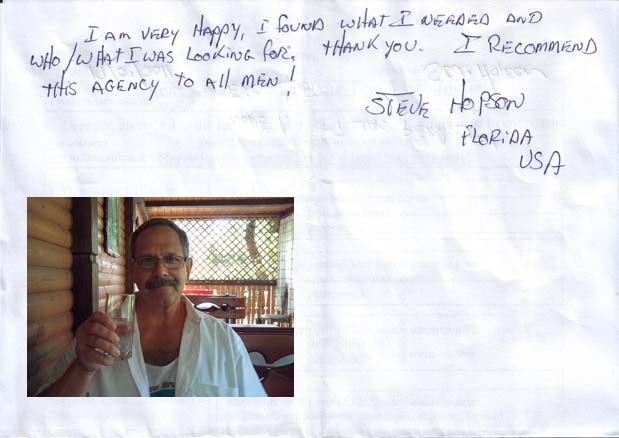 I AM VERY HAPPY, I FOUND WHAT I NEEDED AND
WHO/WHAT I WAS LOOKING FOR. THANK YOU. I RECOMMEND
THIS AGENCY TO ALL MEN!
STEVE HOPSON
FLORIDA
USA